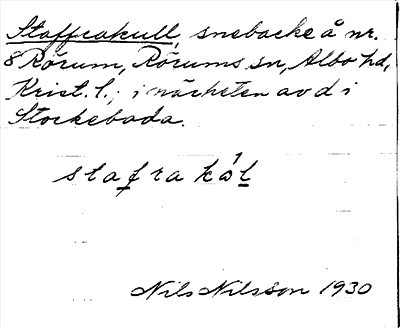 Staffrakull, snebacke å nr.
8 Rörum, Rörums sn, Albo hd,
Krist. l.; i närheten av d i
Stockebada.
stafrakál
Nils Nilsson 1930